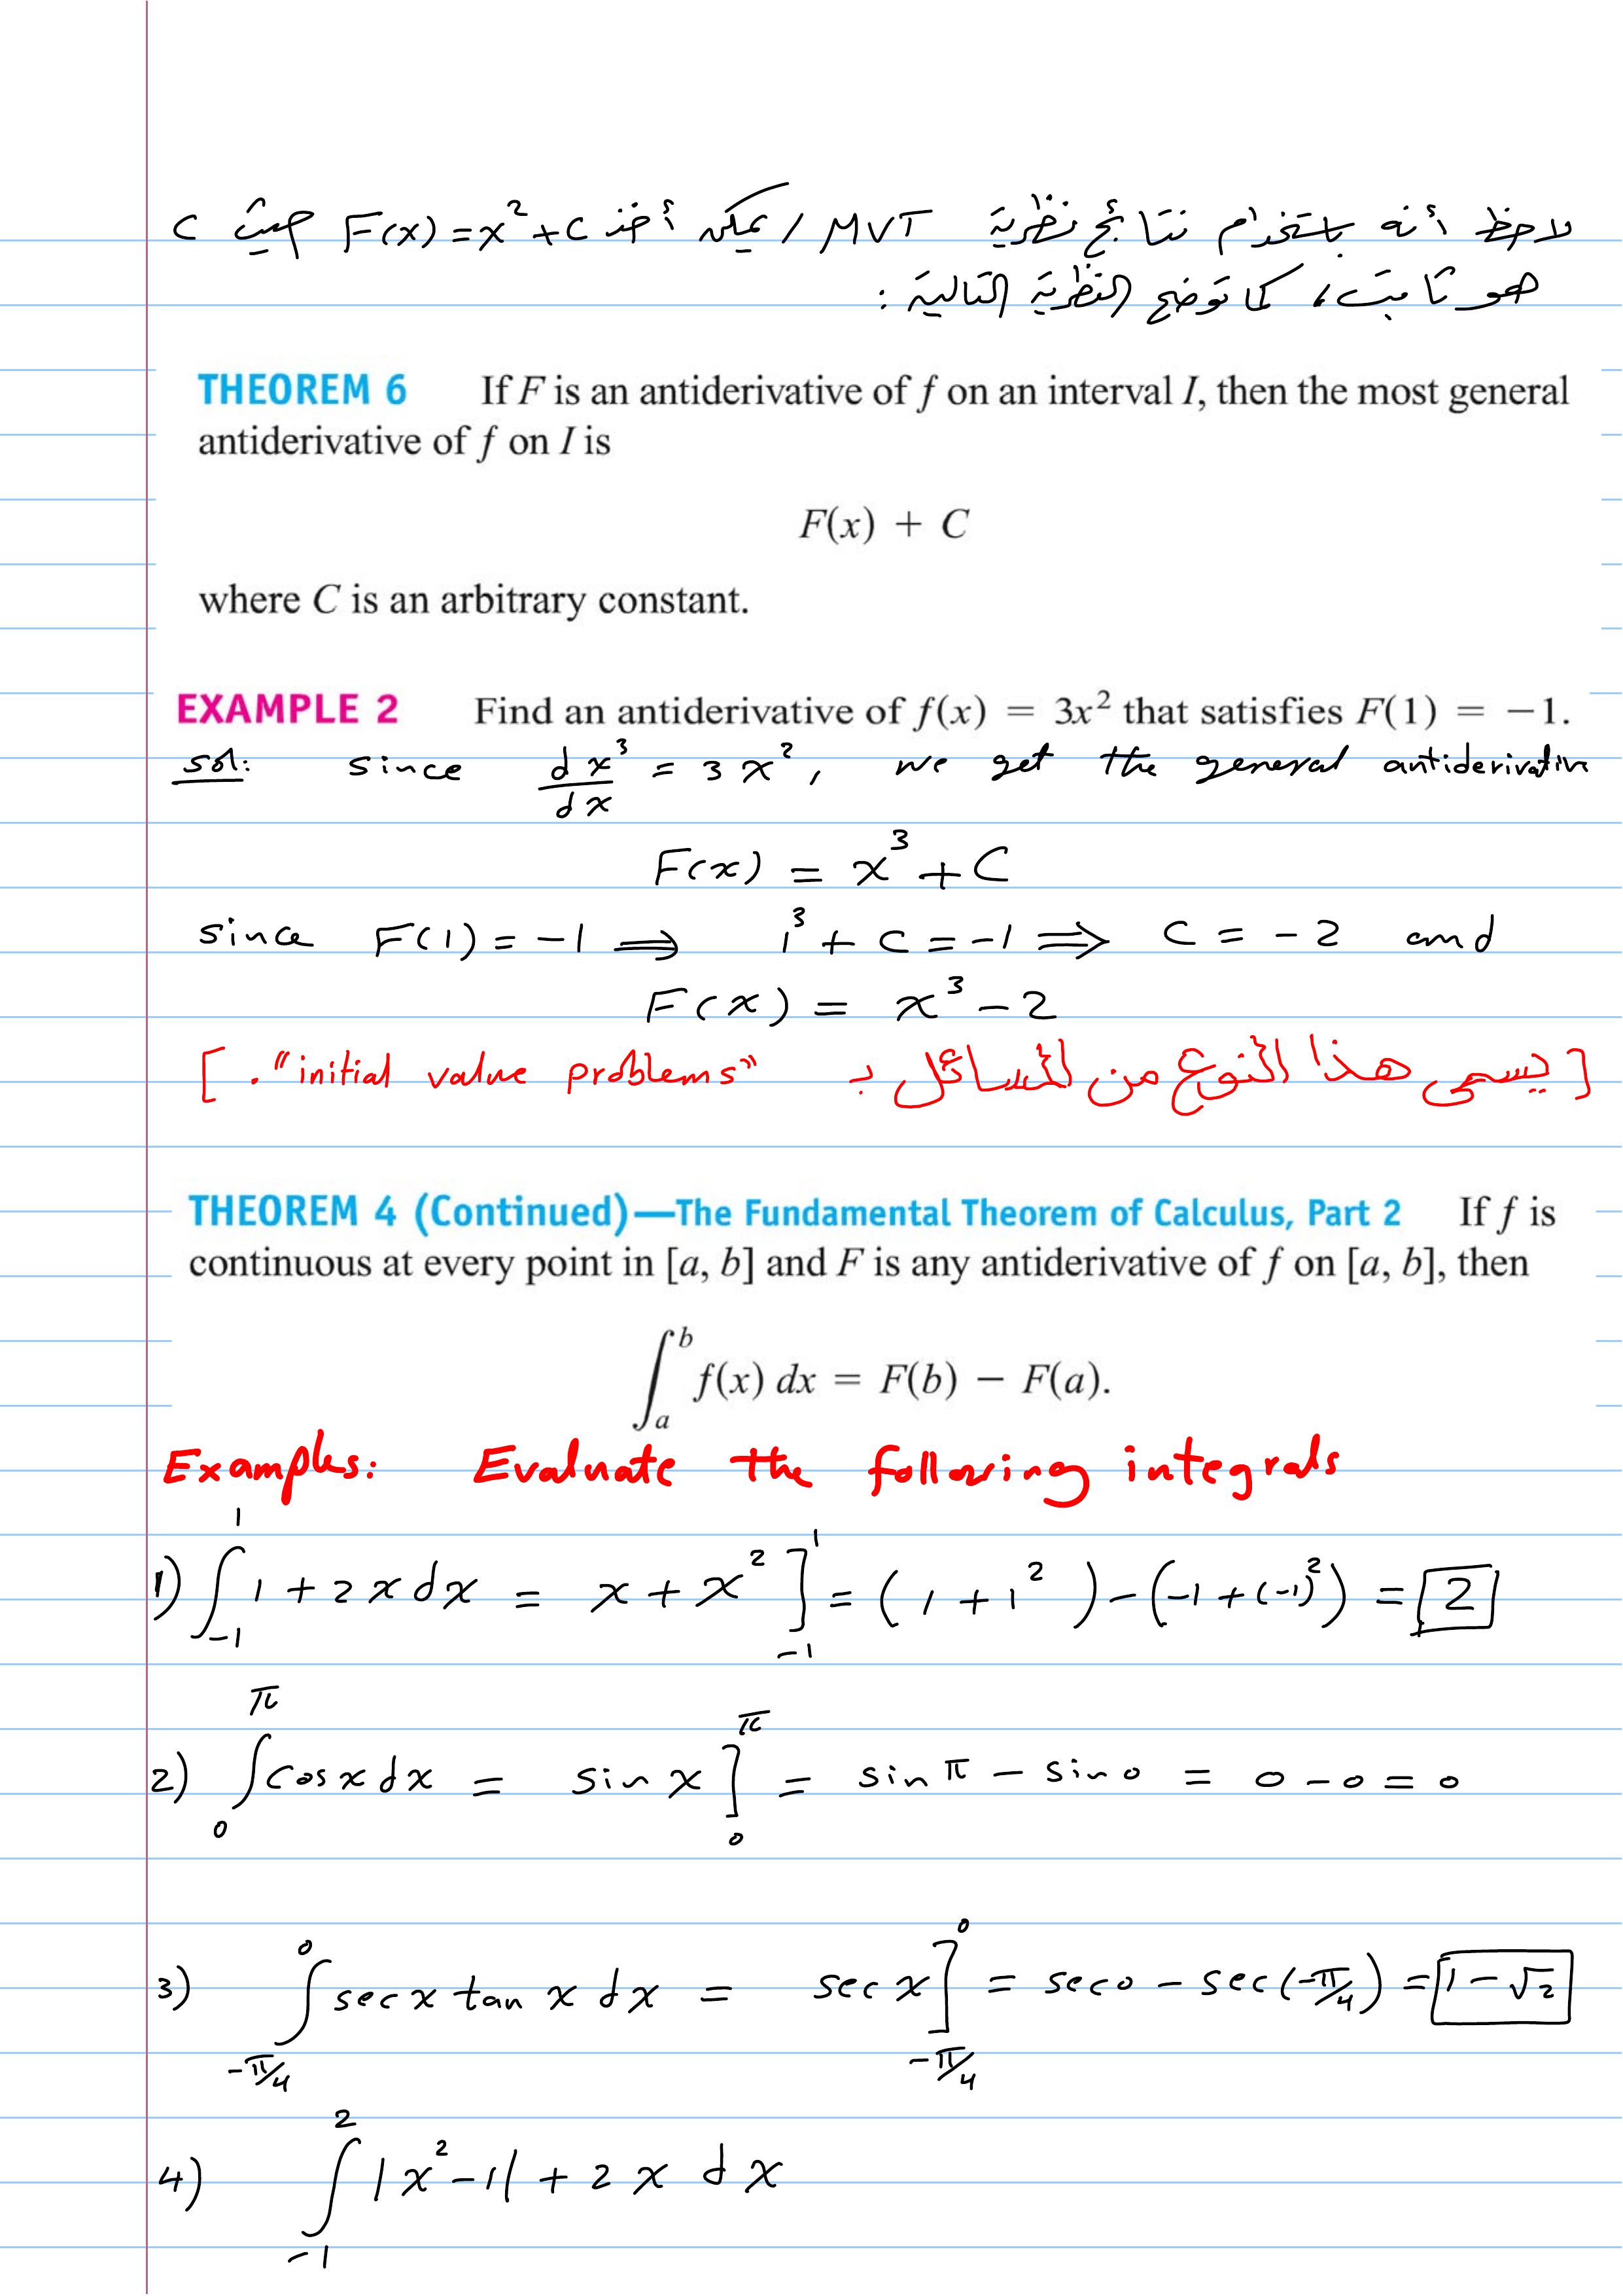 لاحظ أنه باستخدام نتائج نظرية MVT / يمكن أخذ F(x)=x²+C حيث C
هو ثابت، كما توضح النظرية التالية :
THEOREM 6 If F is an antiderivative of f on an interval I, then the most general
antiderivative of f on I is
F(x) + C
where C is an arbitrary constant.
EXAMPLE 2 Find an antiderivative of f(x) = 3x² that satisfies F(1) = −1.
sol: since dx³/dx = 3x², we get the general antiderivative
F(x) = x³ + C
since F(1) = −1 ⟹ 1³ + C = −1 ⟹ C = −2 and
F(x) = x³ − 2
[يسمى هذا النوع من المسائل بـ "initial value problems".]
THEOREM 4 (Continued)—The Fundamental Theorem of Calculus, Part 2 If f is
continuous at every point in [a, b] and F is any antiderivative of f on [a, b], then
∫_a^b f(x) dx = F(b) − F(a).
Examples: Evaluate the following integrals
1) ∫_{-1}^{1} 1 + 2x dx = x + x² ]_{-1}^{1} = (1 + 1²) − (−1 + (−1)²) = 2
2) ∫_0^π cos x dx = sin x ]_0^π = sin π − sin 0 = 0 − 0 = 0
3) ∫_{-π/4}^{0} sec x tan x dx = sec x ]_{-π/4}^{0} = sec 0 − sec(−π/4) = 1 − √2
4) ∫_{-1}^{2} |x² − 1| + 2x dx